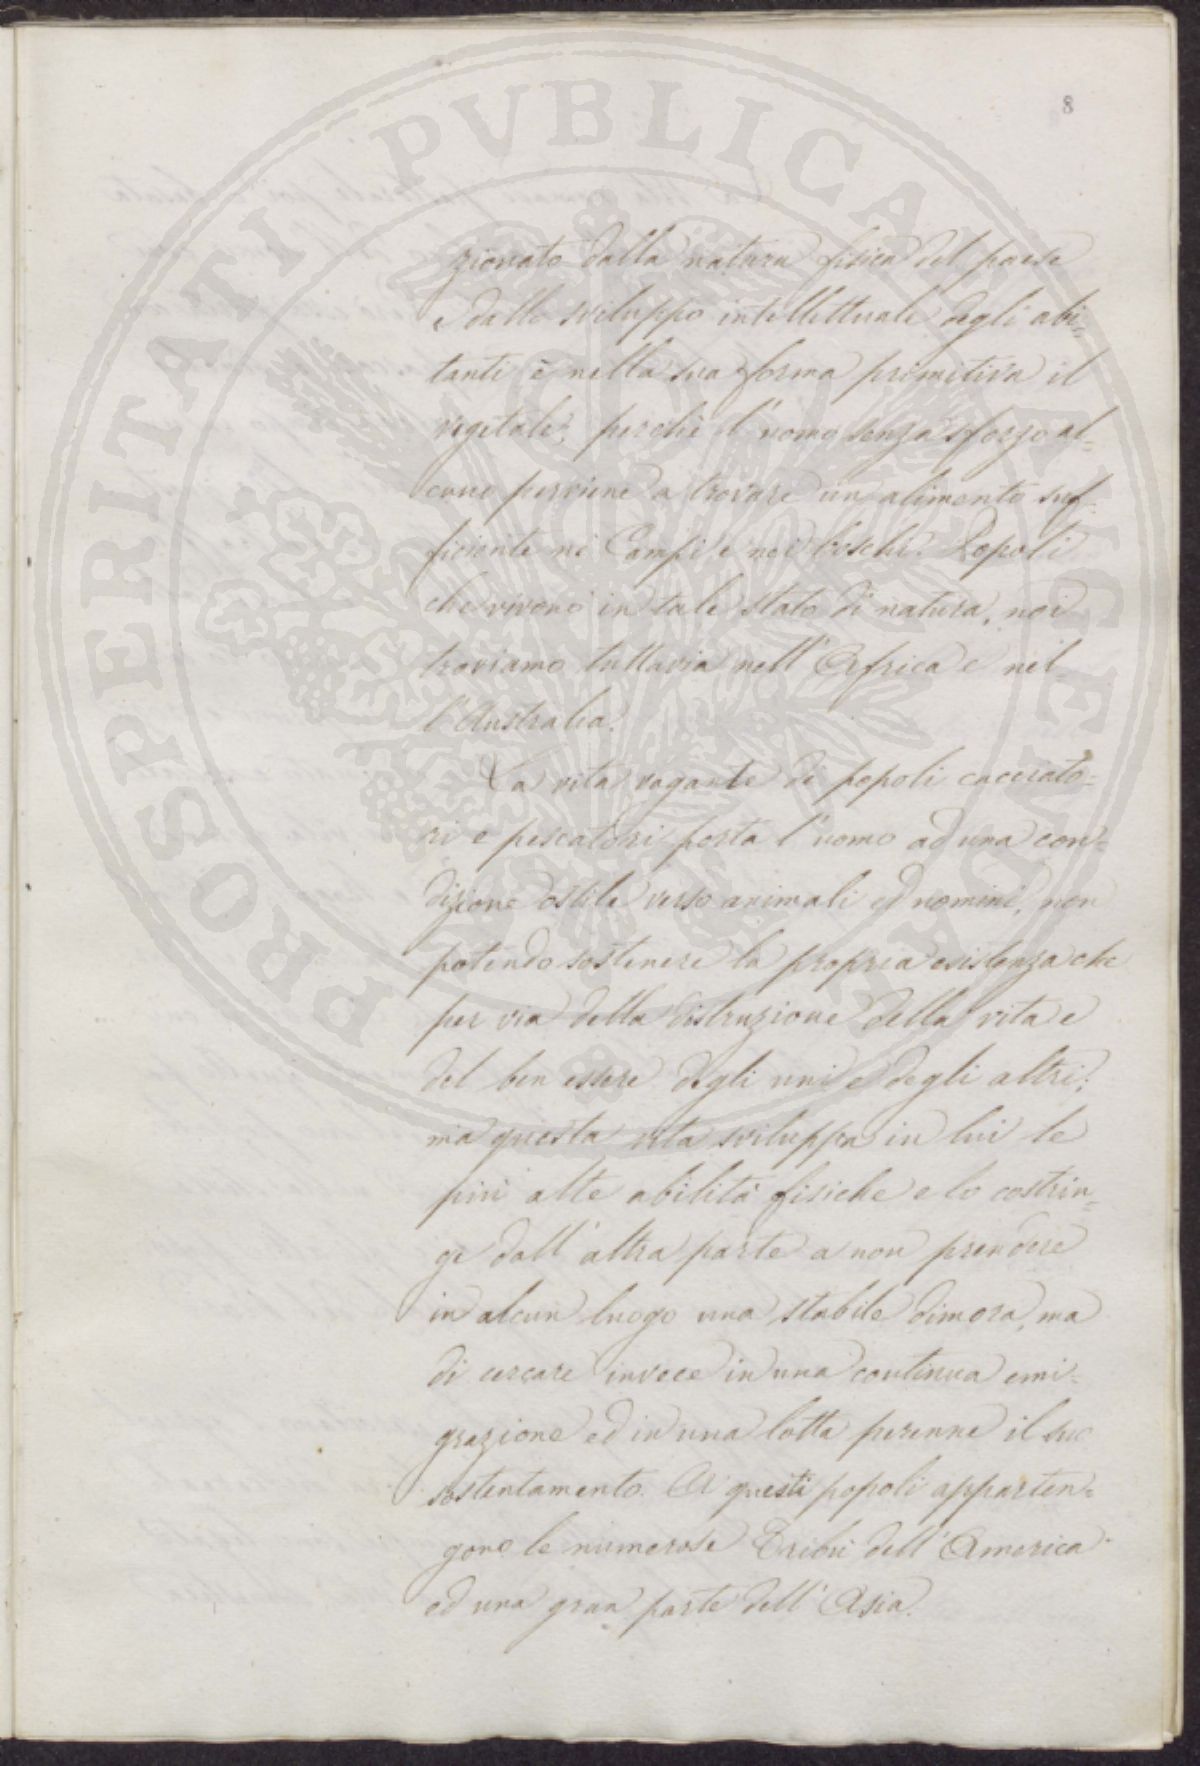 PROSPERITATI PVBLICAE AVGENDAE
8
zionato dalla natura fisica del paese
e dallo sviluppo intellettuale degli abi=
tanti è nella sua forma primitiva il
vegetale; perchè l'uomo senza sforzo al=
cuno perviene a trovare un alimento suf=
ficiente ne' Campi e nei boschi. Popoli
che vivono in tale stato di natura, noi
troviamo tuttavia nell'Africa e nel=
l'Australia.
La vita vagante di popoli cacciato=
ri e pescatori porta l'uomo ad una con=
dizione ostile verso animali ed uomini, non
potendo sostenere la propria esistenza che
per via della distruzione della vita e
del ben essere degli uni e degli altri;
ma questa vita sviluppa in lui le
più alte abilità fisiche e lo costrin=
ge dall'altra parte a non prendere
in alcun luogo una stabile dimora, ma
di cercare invece in una continua emi=
grazione ed in una lotta perenne il suo
sostentamento. A questi popoli apparten=
gono le numerose Tribù dell'America
ed una gran parte dell'Asia.